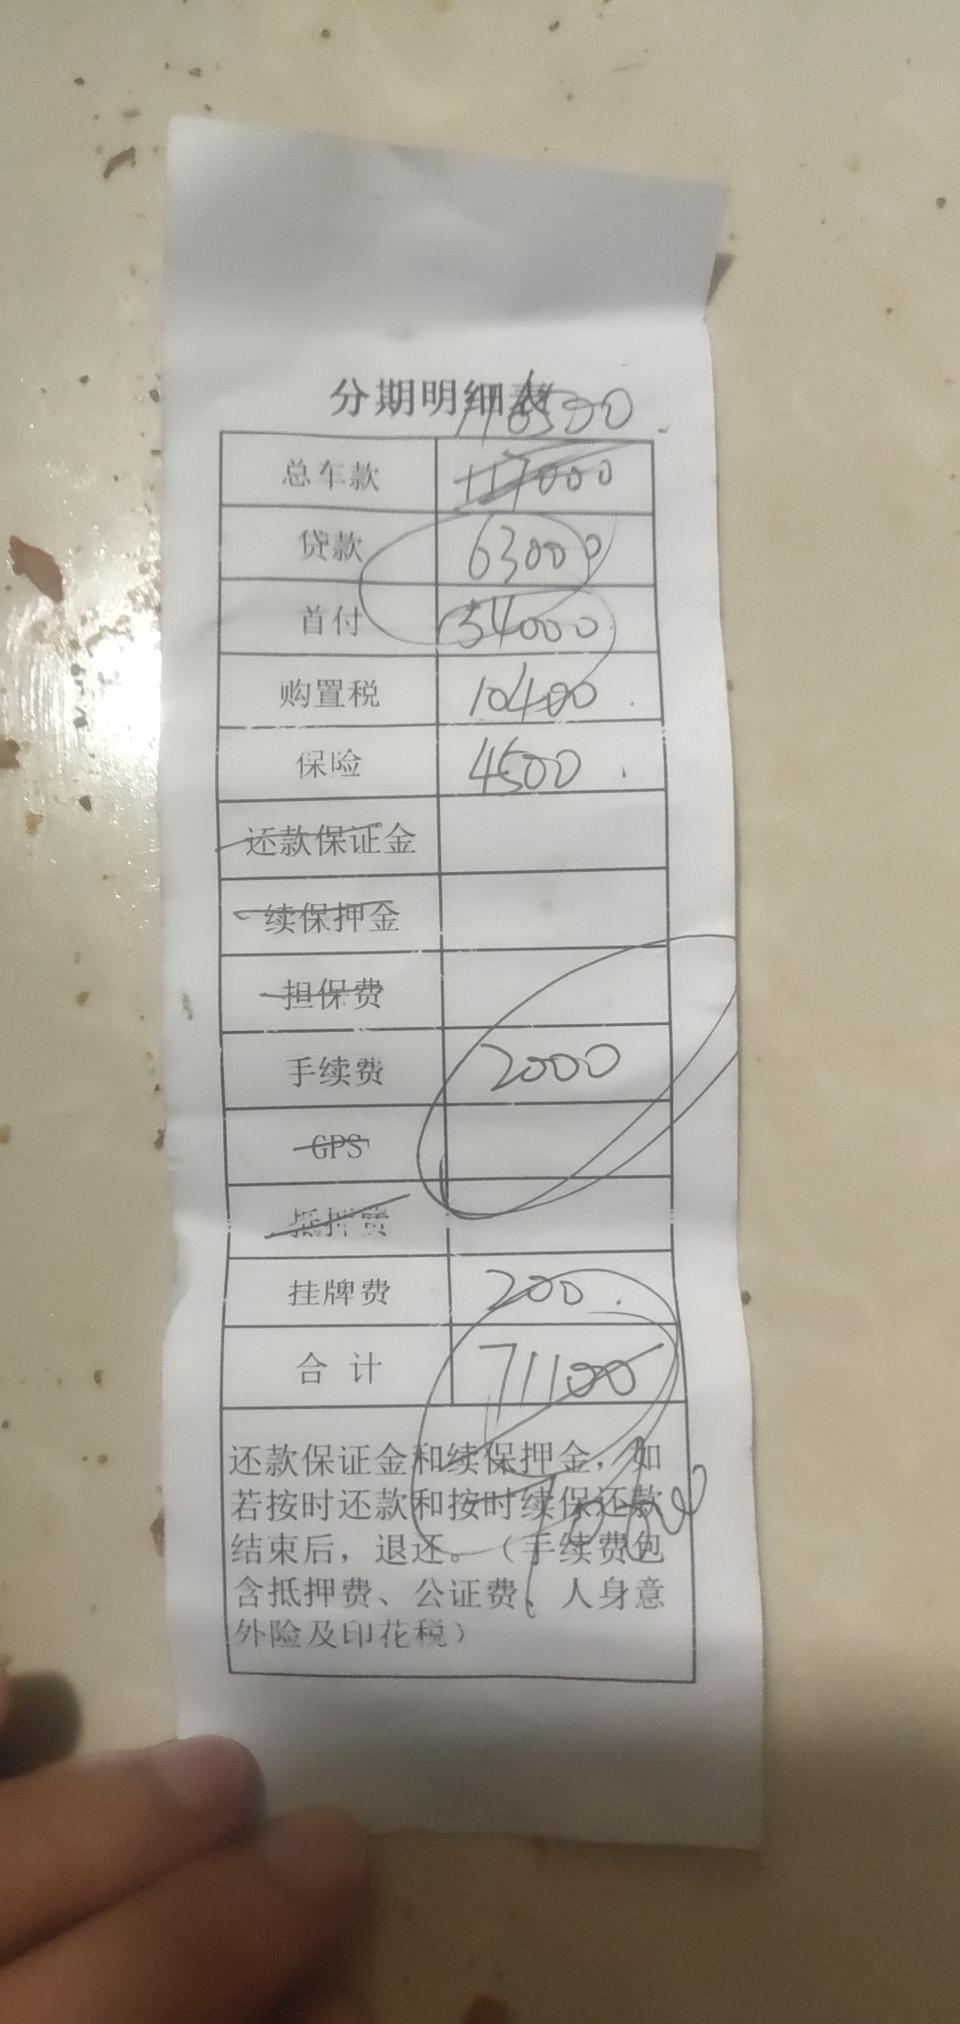 分期明细表
116500
总车款 117000
贷款 63000
首付 54000
购置税 10400
保险 4500
还款保证金
续保押金
担保费
手续费 2000
GPS
抵押费
挂牌费 200
合 计 71100
还款保证金和续保押金，如
若按时还款和按时续保还款
结束后，退还。（手续费包
含抵押费、公证费、人身意
外险及印花税）